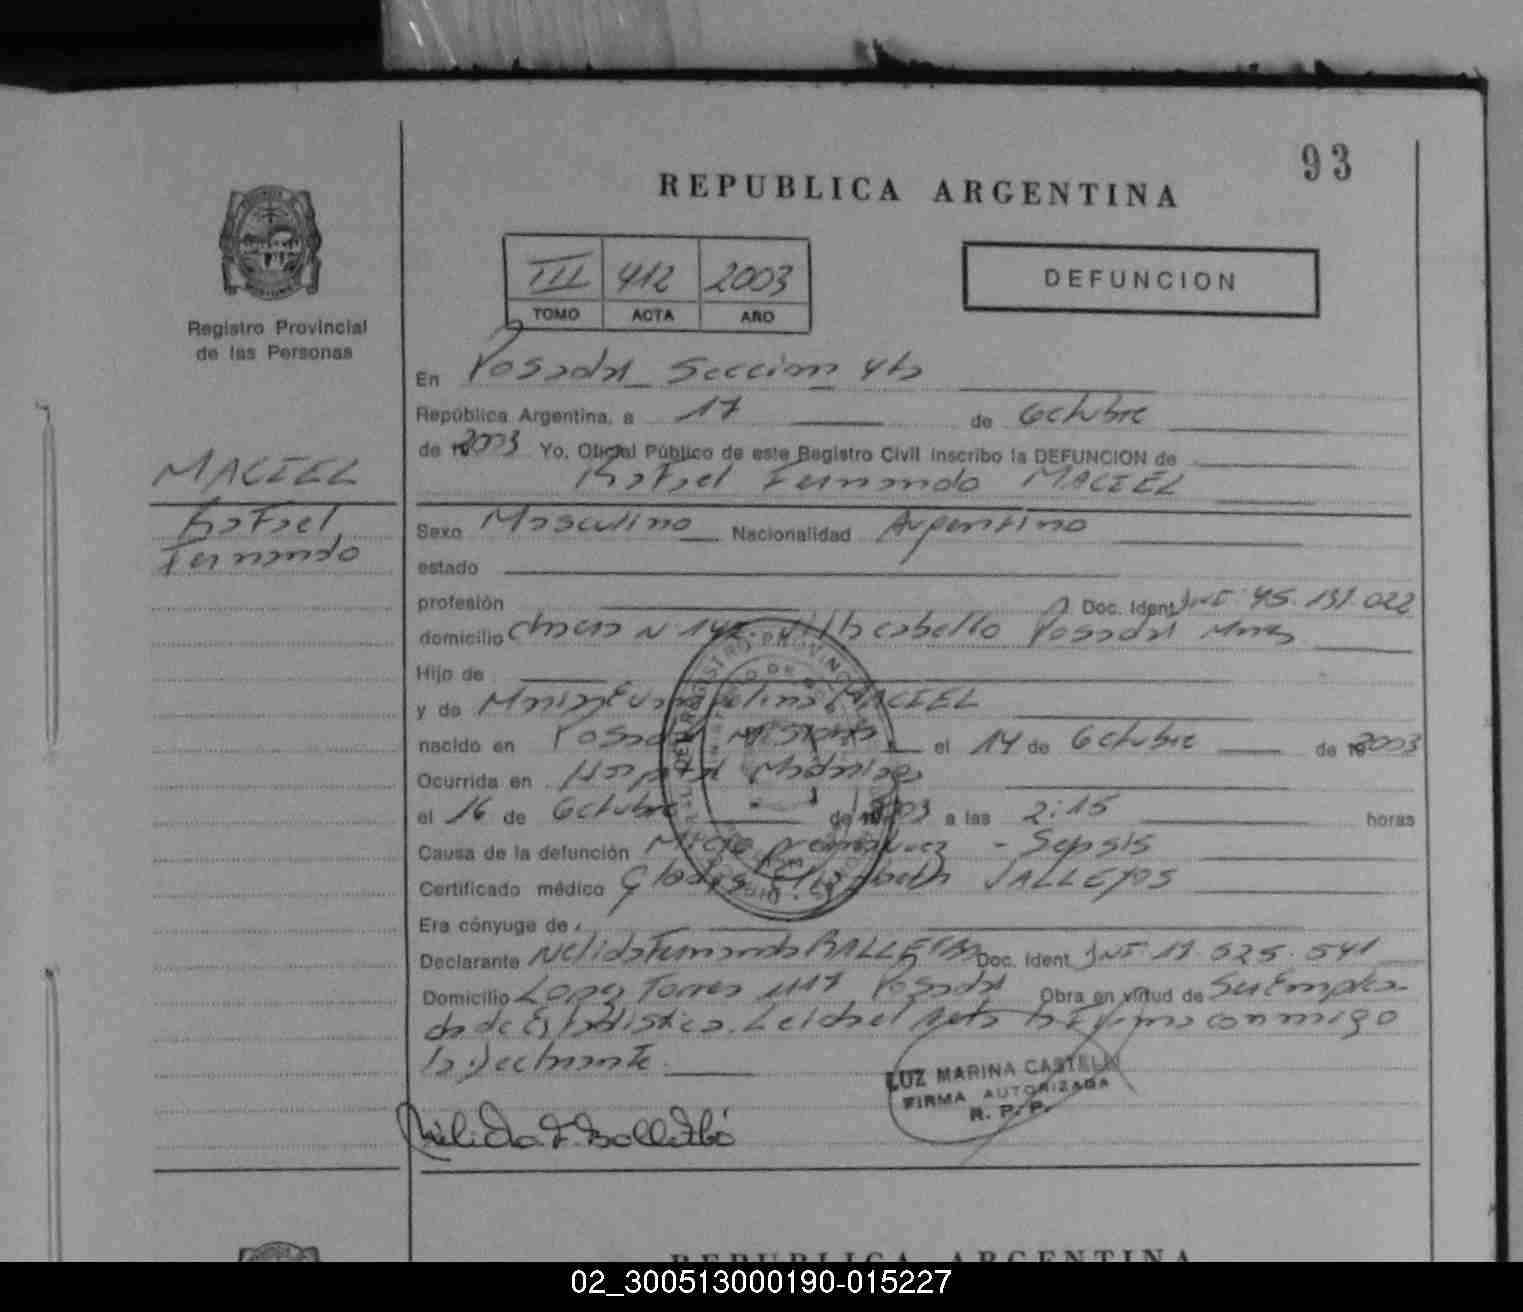 93
REPUBLICA ARGENTINA
III 412 2003
TOMO ACTA AÑO
DEFUNCION
Registro Provincial
de las Personas
En Posadas Seccion 4ta
República Argentina, a 17 de Octubre
de 2003 Yo, Oficial Público de este Registro Civil inscribo la DEFUNCION de
Rafael Fernando MACIEL
MACIEL
Rafael
Fernando
Sexo Masculino Nacionalidad Argentino
estado
profesión Doc. Ident. DNI 45.131.022
domicilio Chacra N 142 Villa cabello Posadas Mnes
Hijo de
y de Maria MACIEL
nacido en Posadas Misiones el 14 de Octubre de 2003
Ocurrida en Hospital Madariaga
el 16 de Octubre de 2003 a las 2:15 horas
Causa de la defunción - Sepsis
Certificado médico Gladys Elizabeth VALLEJOS
Era cónyuge de
Declarante Nelida Fernanda Doc. Ident. DNI 17.525.541
Domicilio Lopez Torres 1117 Posadas Obra en virtud de Ser Emplea-
da de Estadistica. Leida el Acta la firma conmigo
la declarante.
LUZ MARINA CASTELLI
FIRMA AUTORIZADA
R. P. P.
REPUBLICA ARGENTINA
02_300513000190-015227